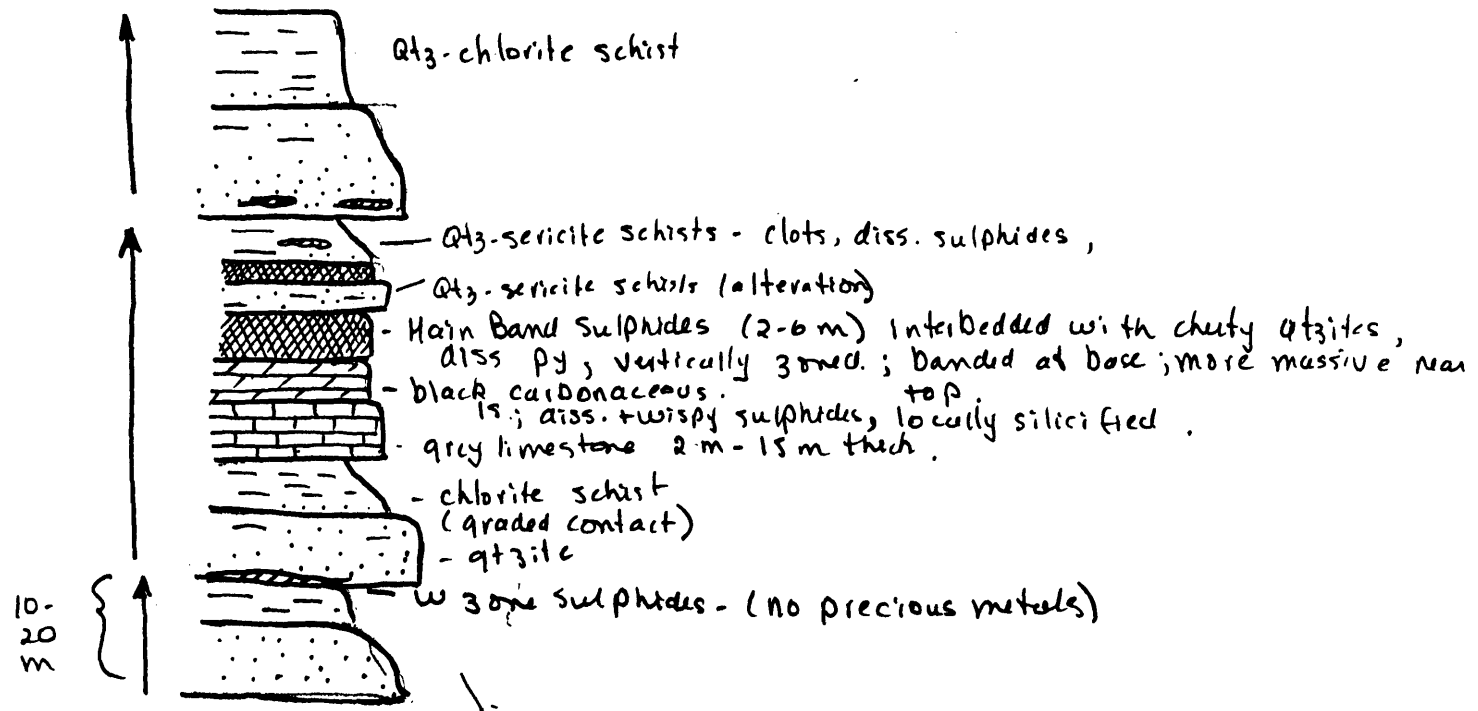 Qtz-chlorite schist
Qtz-sericite schists - clots, diss. sulphides,
Qtz-sericite schists (alteration)
- Main Band Sulphides (2-6 m) Interbedded with cherty qtzites,
diss py, vertically zoned.; banded at base; more massive near
- black carbonaceous. top.
ls.; diss. + wispy sulphides, locally silicified.
- grey limestone 2 m - 15 m thick.
- chlorite schist
(graded contact)
- qtzite
W zone sulphides - (no precious metals)
10-
20
m